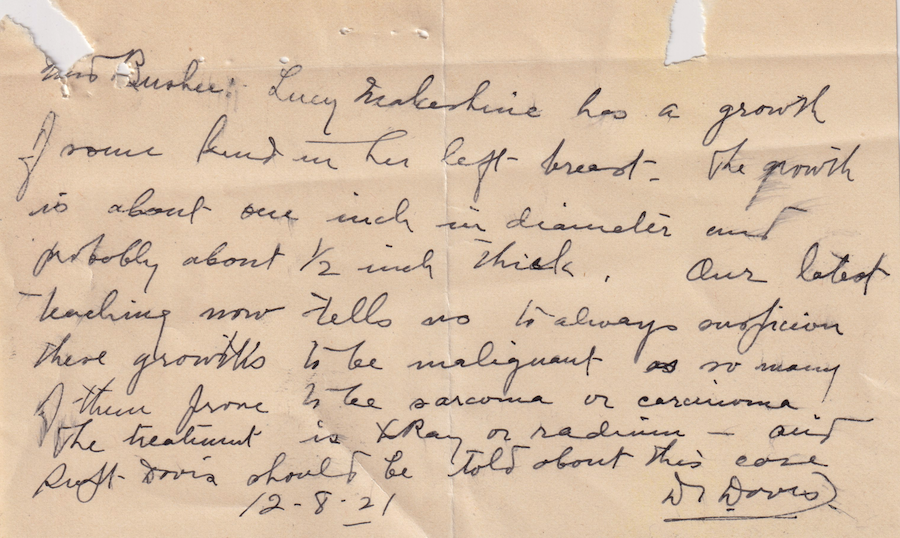 Miss Busher: Lucy Makeshine has a growth
of some kind in her left breast. The growth
is about one inch in diameter and
probably about 1/2 inch thick. Our latest
teaching now tells us to always suspicion
these growths to be malignant as so many
of them prove to be sarcoma or carcinoma
The treatment is XRay or radium — and
Supt. Davis should be told about this case
12-8-21 Dr Davis.